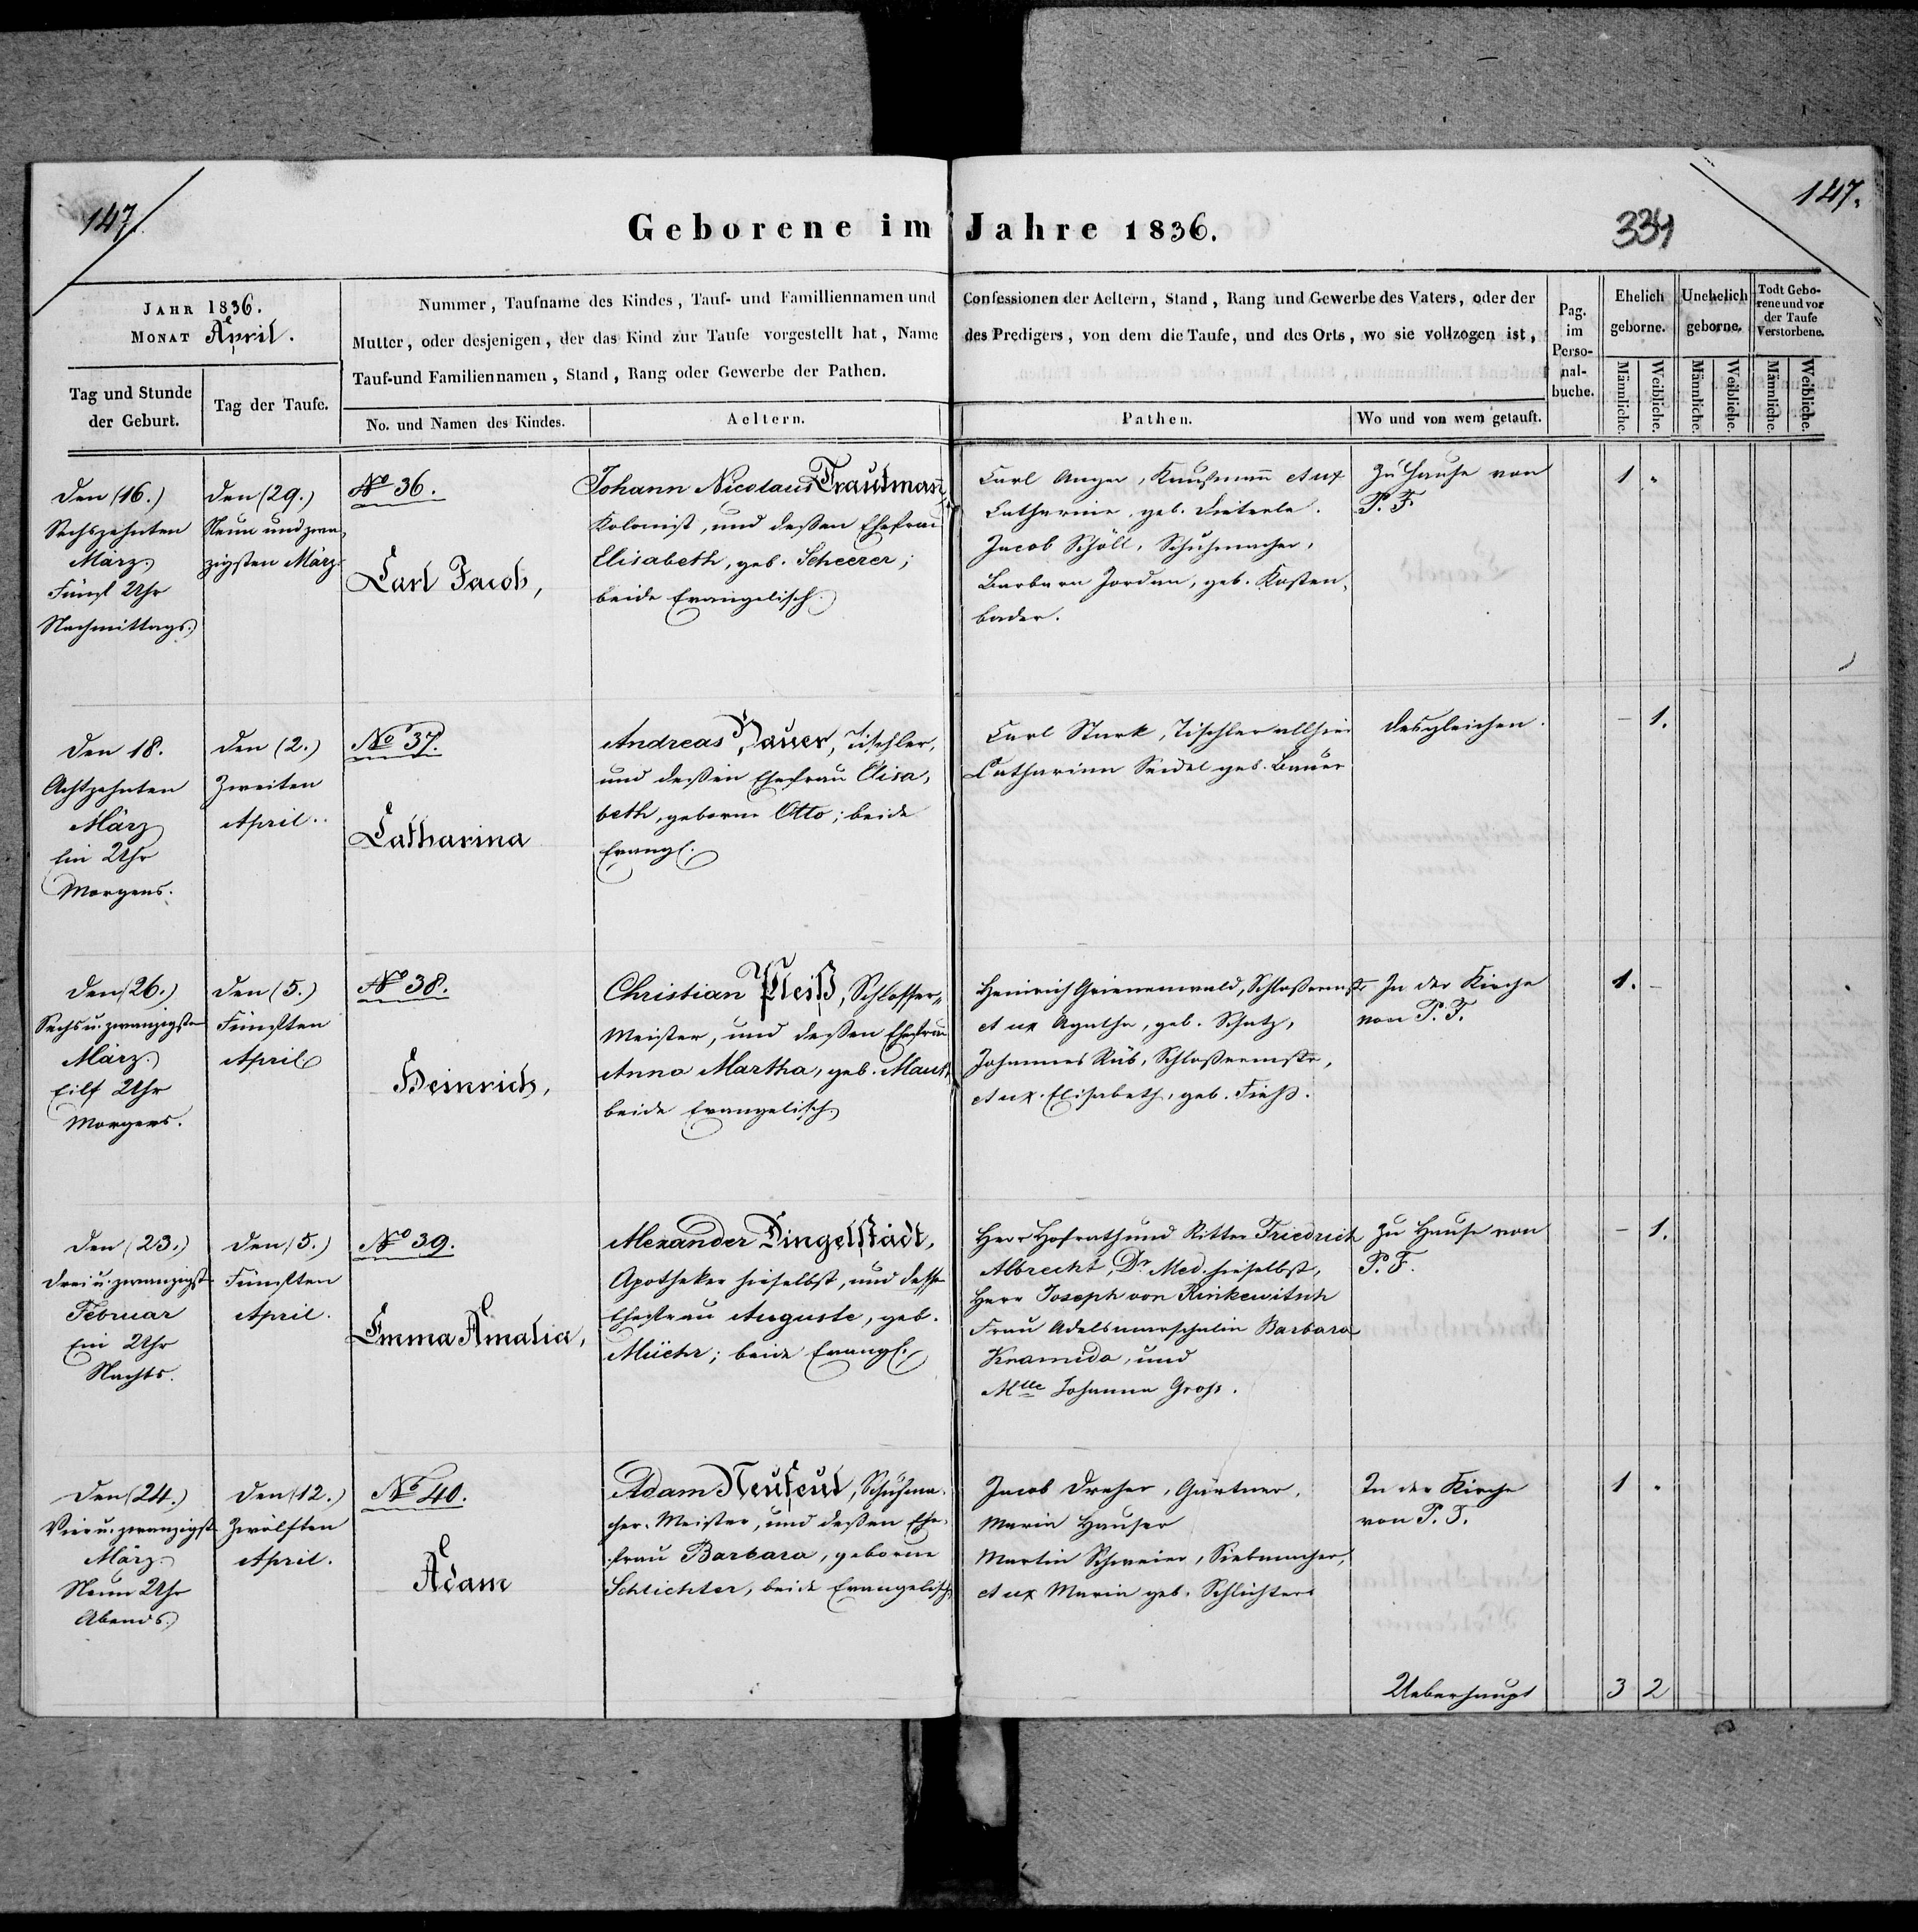 147.
147.
334
Geborene im Jahre 1836.
JAHR 1836.
MONAT April.
Nummer, Taufname des Kindes, Tauf- und Familliennamen und
Mutter, oder desjenigen, der das Kind zur Taufe vorgestellt hat, Name
Tauf-und Familiennamen, Stand, Rang oder Gewerbe der Pathen.
Confessionen der Aeltern, Stand, Rang und Gewerbe des Vaters, oder der
des Predigers, von dem die Taufe, und des Orts, wo sie vollzogen ist,
Pag.
im
Perso-
nal-
buche.
Ehelich
geborne.
Unehelich
geborne.
Todt Gebo-
rene und vor
der Taufe
Verstorbene.
Männliche.
Weibliche.
Männliche.
Weibliche.
Männliche.
Weibliche.
Tag und Stunde
der Geburt.
Tag der Taufe.
No. und Namen des Kindes.
Aeltern.
Pathen.
Wo und von wem getauft.
den (16.)
Sechszehnten
März
Fünf Uhr
Nachmittags.
den (29.)
Neun und zwan-
zigsten März
No 36.
Carl Jacob,
Johann Nicolaus Trautmann,
Kolonist, und deßen Ehefrau
Elisabeth, geb. Scheerer;
beide Evangelisch.
Carl Anger, Kaufmann et ux
Catharine, geb. Dieterle.
Jacob Schöll, Schuhmacher,
Barbara Jordan, geb. Kosten-
bader.
Zu Hause von
P. F.
1 "
den 18.
Achtzehnten
März
Ein Uhr
Morgens.
den (2.)
Zweiten
April.
No 37.
Catharina
Andreas Bauer, Tischler,
und deßen Ehefrau Elisa-
beth, geborne Otto; beide
Evangl.
Carl Stark, Tischler allhier
Catharina Seidel geb. Bauer
desgleichen.
- 1.
den (26.)
Sechs u. zwanzigsten
März
Eilf Uhr
Morgens.
den (5.)
Fünften
April
No 38.
Heinrich,
Christian Pleiß, Schlosser-
Meister, und deßen Ehefrau
Anna Martha, geb. Maus,
beide Evangelisch
Heinrich Grienenwald, Schloßermstr
et ux Agatha, geb. Schatz,
Johannes Rüb, Schloßermstr,
et ux. Elisabeth, geb. Fieß.
In der Kirche
von P. F.
1. -
den (23.)
drei u. zwanzigst
Februar
Ein Uhr
Nachts.
den (5.)
Fünften
April.
No 39.
Emma Amalia,
Alexander Dingelstädt,
Apotheker hieselbst, und desse
Ehefrau Auguste, geb.
Müchr; beide Evangl.
Herr Hofrath und Ritter Friedrich
Albrecht, Dr Med. hieselbst,
Herr Joseph von Rinkewitsch
Frau Adelsmarschalin Barbara
Knamida, und
Mlle Johanna Groß.
Zu Hause von
P. F.
- 1.
den (24.)
Vier u. zwanzigst
März
Neun Uhr
Abends.
den (12.)
Zwölften
April.
No 40.
Adam
Adam Neufeut, Schuhma-
cher-Meister, und deßen Ehe-
frau Barbara, geborne
Schlichter, beide Evangelisch
Jacob Dreher, Gärtner,
Maria Hauser
Martin Schweier, Siebmacher,
et ux Maria geb. Schlichter
In der Kirche
von P. F.
1 "
Ueberhaupt
3 2